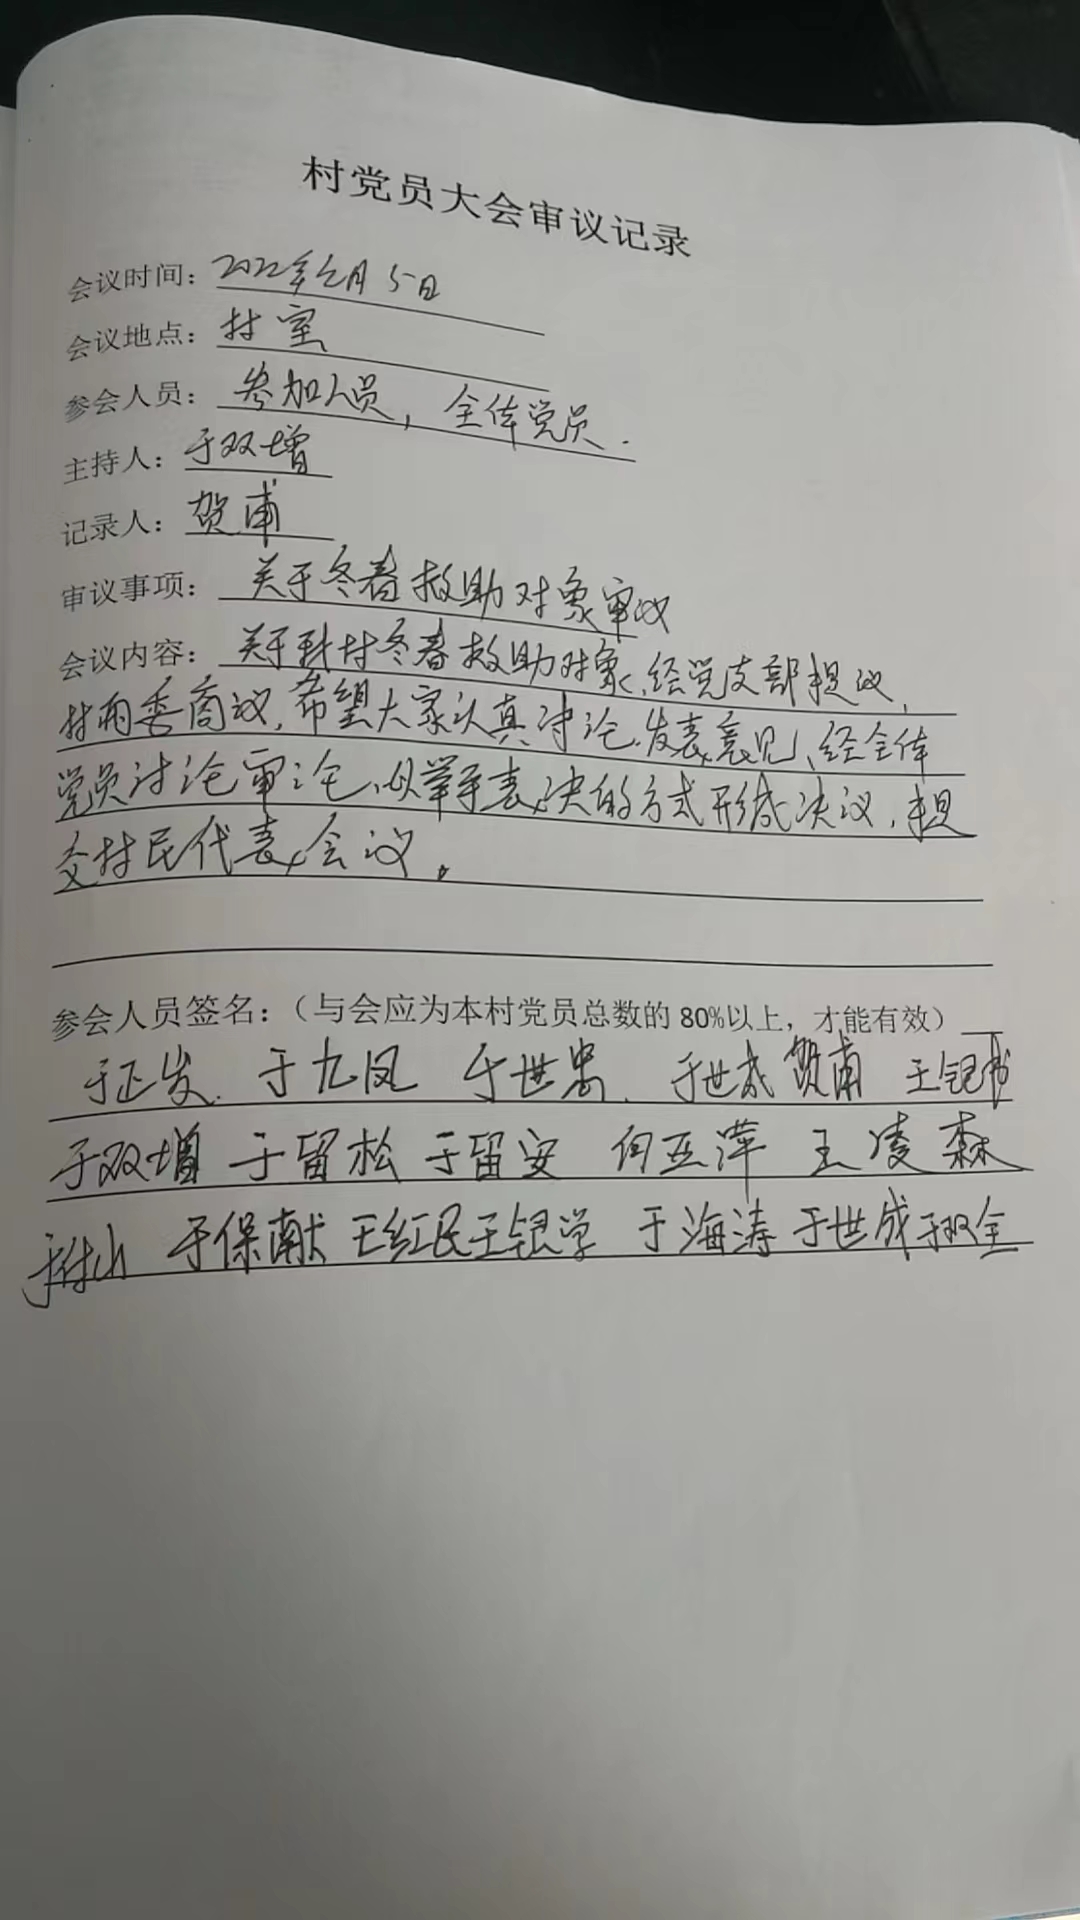 村党员大会审议记录
会议时间：2022年元月5日
会议地点：村室
参会人员：参加人员，全体党员.
主持人：于双增
记录人：贺甫
审议事项：关于冬春救助对象审议
会议内容：关于我村冬春救助对象，经党支部提议，
村两委商议，希望大家认真讨论，发表意见，经全体
党员讨论审论，以举手表决的方式形成决议，提
交村民代表会议。
参会人员签名：（与会应为本村党员总数的80%以上，才能有效）
于正发 于九凤 于世忠 于世成 贺甫 王银书
于双增 于留松 于留安 何亚萍 王凌森
于保献 王红民 王银学 于海涛 于世成 于双全